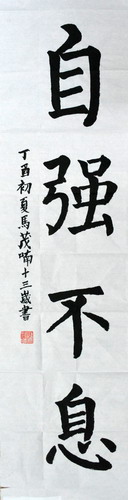 自强不息
丁酉初夏馬茂喃十三歲書